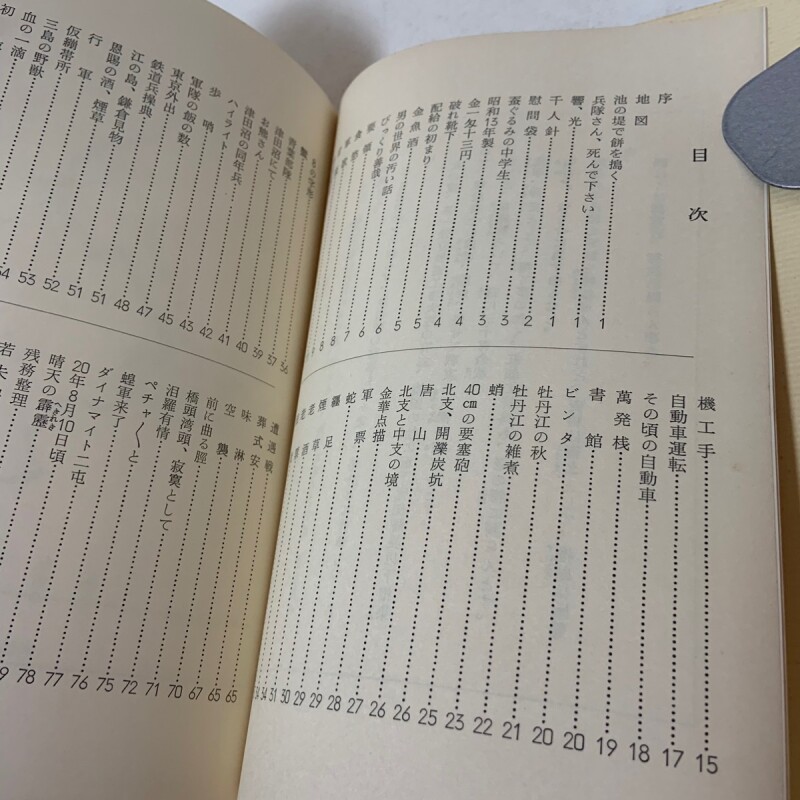 目次
序
地図
池の堤で餅を搗く……1
兵隊さん、死んで下さい……1
響、光……1
千人針……2
慰問袋……3
蚕ぐるみの中学生……3
昭和13年製……4
金一匁十三円……4
破れ靴下……5
配給の初まり……5
金魚酒……6
男の世界の汚い話……6
びっくり善哉……7
機工手……15
自動車運転……17
その頃の自動車……18
萬発桟……19
書館……20
ビンタ……20
牡丹江の秋……21
牡丹江の雑煮……22
蛸……23
40cmの要塞砲……25
北支、開灤炭坑……26
唐山……26
北支と中支の境……27
金華点描……28
軍票……29
蛇……29
津田沼にて……37
お焼さん……39
津田沼の同年兵……40
ハイライト……41
歩哨……42
軍隊の飯の数……43
東京外出……45
鉄道兵操典……47
江の島、鎌倉見物……48
恩賜の酒、煙草……51
行軍……51
仮繃帯所……52
三島の野獣……53
血の一滴……54
初
遭遇戦
味淋
空襲……65
前に曲る脛……65
橋頭湾頭、寂寞として……67
汨羅有情……70
ペチャ〱と……71
蝗軍来了……72
ダイナマイト二屯……75
20年8月10日頃……76
晴天の霹靂……77
へきれき
残務整理……78
若